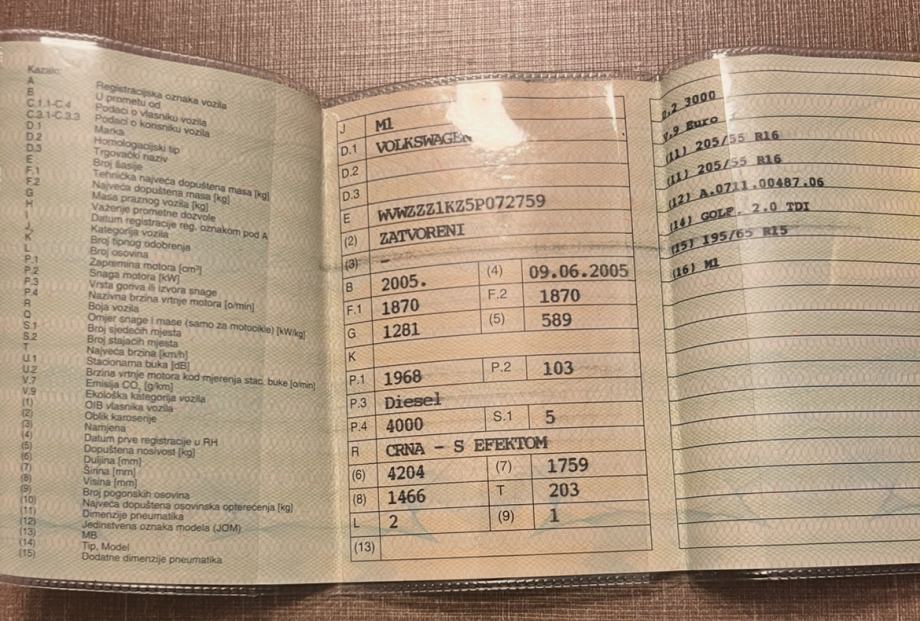 Kazalo:
A Registracijska oznaka vozila
B U prometu od
C.1.1-C.4 Podaci o vlasniku vozila
C.3.1-C.3.3 Podaci o korisniku vozila
D.1 Marka
D.2 Homologacijski tip
D.3 Trgovački naziv
E Broj šasije
F.1 Tehnička najveća dopuštena masa [kg]
F.2 Najveća dopuštena masa [kg]
G Masa praznog vozila [kg]
H Važenje prometne dozvole
I Datum registracije reg. oznakom pod A
J Kategorija vozila
K Broj tipnog odobrenja
L Broj osovina
P.1 Zapremina motora [cm³]
P.2 Snaga motora [kW]
P.3 Vrsta goriva ili izvora snage
P.4 Nazivna brzina vrtnje motora [o/min]
R Boja vozila
Q Omjer snage i mase (samo za motocikle) [kW/kg]
S.1 Broj sjedećih mjesta
S.2 Broj stajaćih mjesta
T Najveća brzina [km/h]
U.1 Stacionarna buka [dB]
U.2 Brzina vrtnje motora kod mjerenja stac. buke [o/min]
V.7 Emisija CO₂ [g/km]
V.9 Ekološka kategorija vozila
(1) OIB vlasnika vozila
(2) Oblik karoserije
(3) Namjena
(4) Datum prve registracije u RH
(5) Dopuštena nosivost [kg]
(6) Duljina [mm]
(7) Širina [mm]
(8) Visina [mm]
(9) Broj pogonskih osovina
(10) Najveća dopuštena osovinska opterećenja [kg]
(11) Dimenzije pneumatika
(12) Jedinstvena oznaka modela (JOM)
(13) MB
(14) Tip, Model
(15) Dodatne dimenzije pneumatika
J M1
D.1 VOLKSWAGEN
D.2
D.3
E WVWZZZ1KZ5P072759
(2) ZATVORENI
(3) –
B 2005. (4) 09.06.2005
F.1 1870 F.2 1870
G 1281 (5) 589
K
P.1 1968 P.2 103
P.3 Diesel
P.4 4000 S.1 5
R CRNA – S EFEKTOM
(6) 4204 (7) 1759
(8) 1466 T 203
L 2 (9) 1
(13)
3000
V.9 Euro
(11) 205/55 R16
(11) 205/55 R16
(12) A.0711.00487.06
(14) GOLF, 2.0 TDI
(15) 195/65 R15
(16) M1